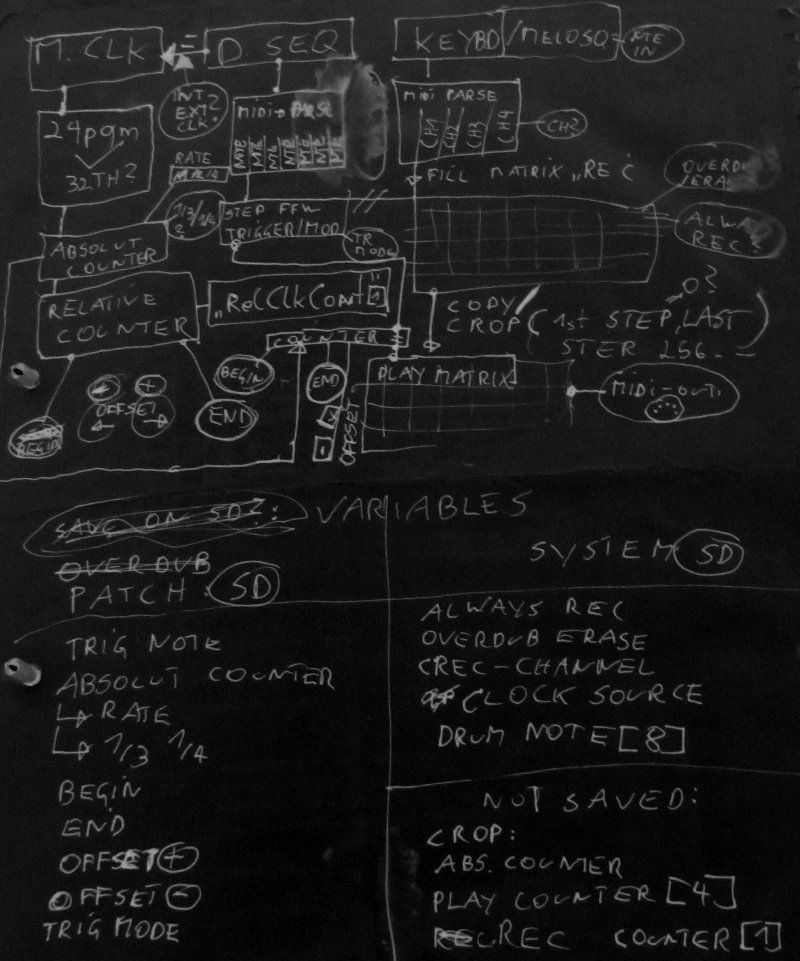 M. CLK
D. SEQ
KEYBD/MELOSQ
IN
INT
EXT?
CLK?
24pqm
32TH?
MiDi→ PARSE
MiDi PARSE
CH1 CH2 CH3 CH4
CH?
RATE
FILL MATRIX „REC
1/3/1/4
?
STEP FFW
TRIGGER/MOD
TR
MODE
REC?
ABSOLUT
COUNTER
RELATIVE
COUNTER
„RecClkCount"
1
COUNTER
COPY/
CROP (1st STEP, LAST
STEP 256.
0?
BEGIN
END
PLAY MATRIX
MiDi-OUT
OFFSET
- +
OFFSET
← →
END
BEGIN
SAVE ON SD?:
VARIABLES
OVERDUB
PATCH: SD
SYSTEM SD
TRIG NOTE
ABSOLUT COUNTER
↳ RATE
↳ 1/3 1/4
BEGIN
END
OFFSET +
OFFSET -
TRIG MODE
ALWAYS REC
OVERDUB ERASE
CREC-CHANNEL
CLOCK SOURCE
DRUM NOTE [8]
NOT SAVED:
CROP:
ABS. COUNTER
PLAY COUNTER [4]
REC COUNTER [1]